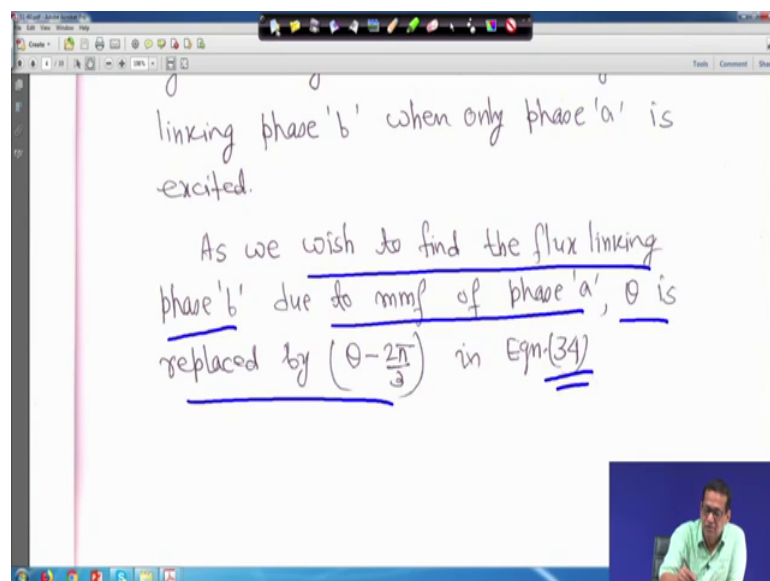 Create
4 / 10
100%
Tools Comment
linking phase 'b' when only phase 'a' is
excited.
As we wish to find the flux linking
phase 'b' due to mmf of phase 'a', θ is
replaced by (θ - 2π/3) in Eqn.(34)